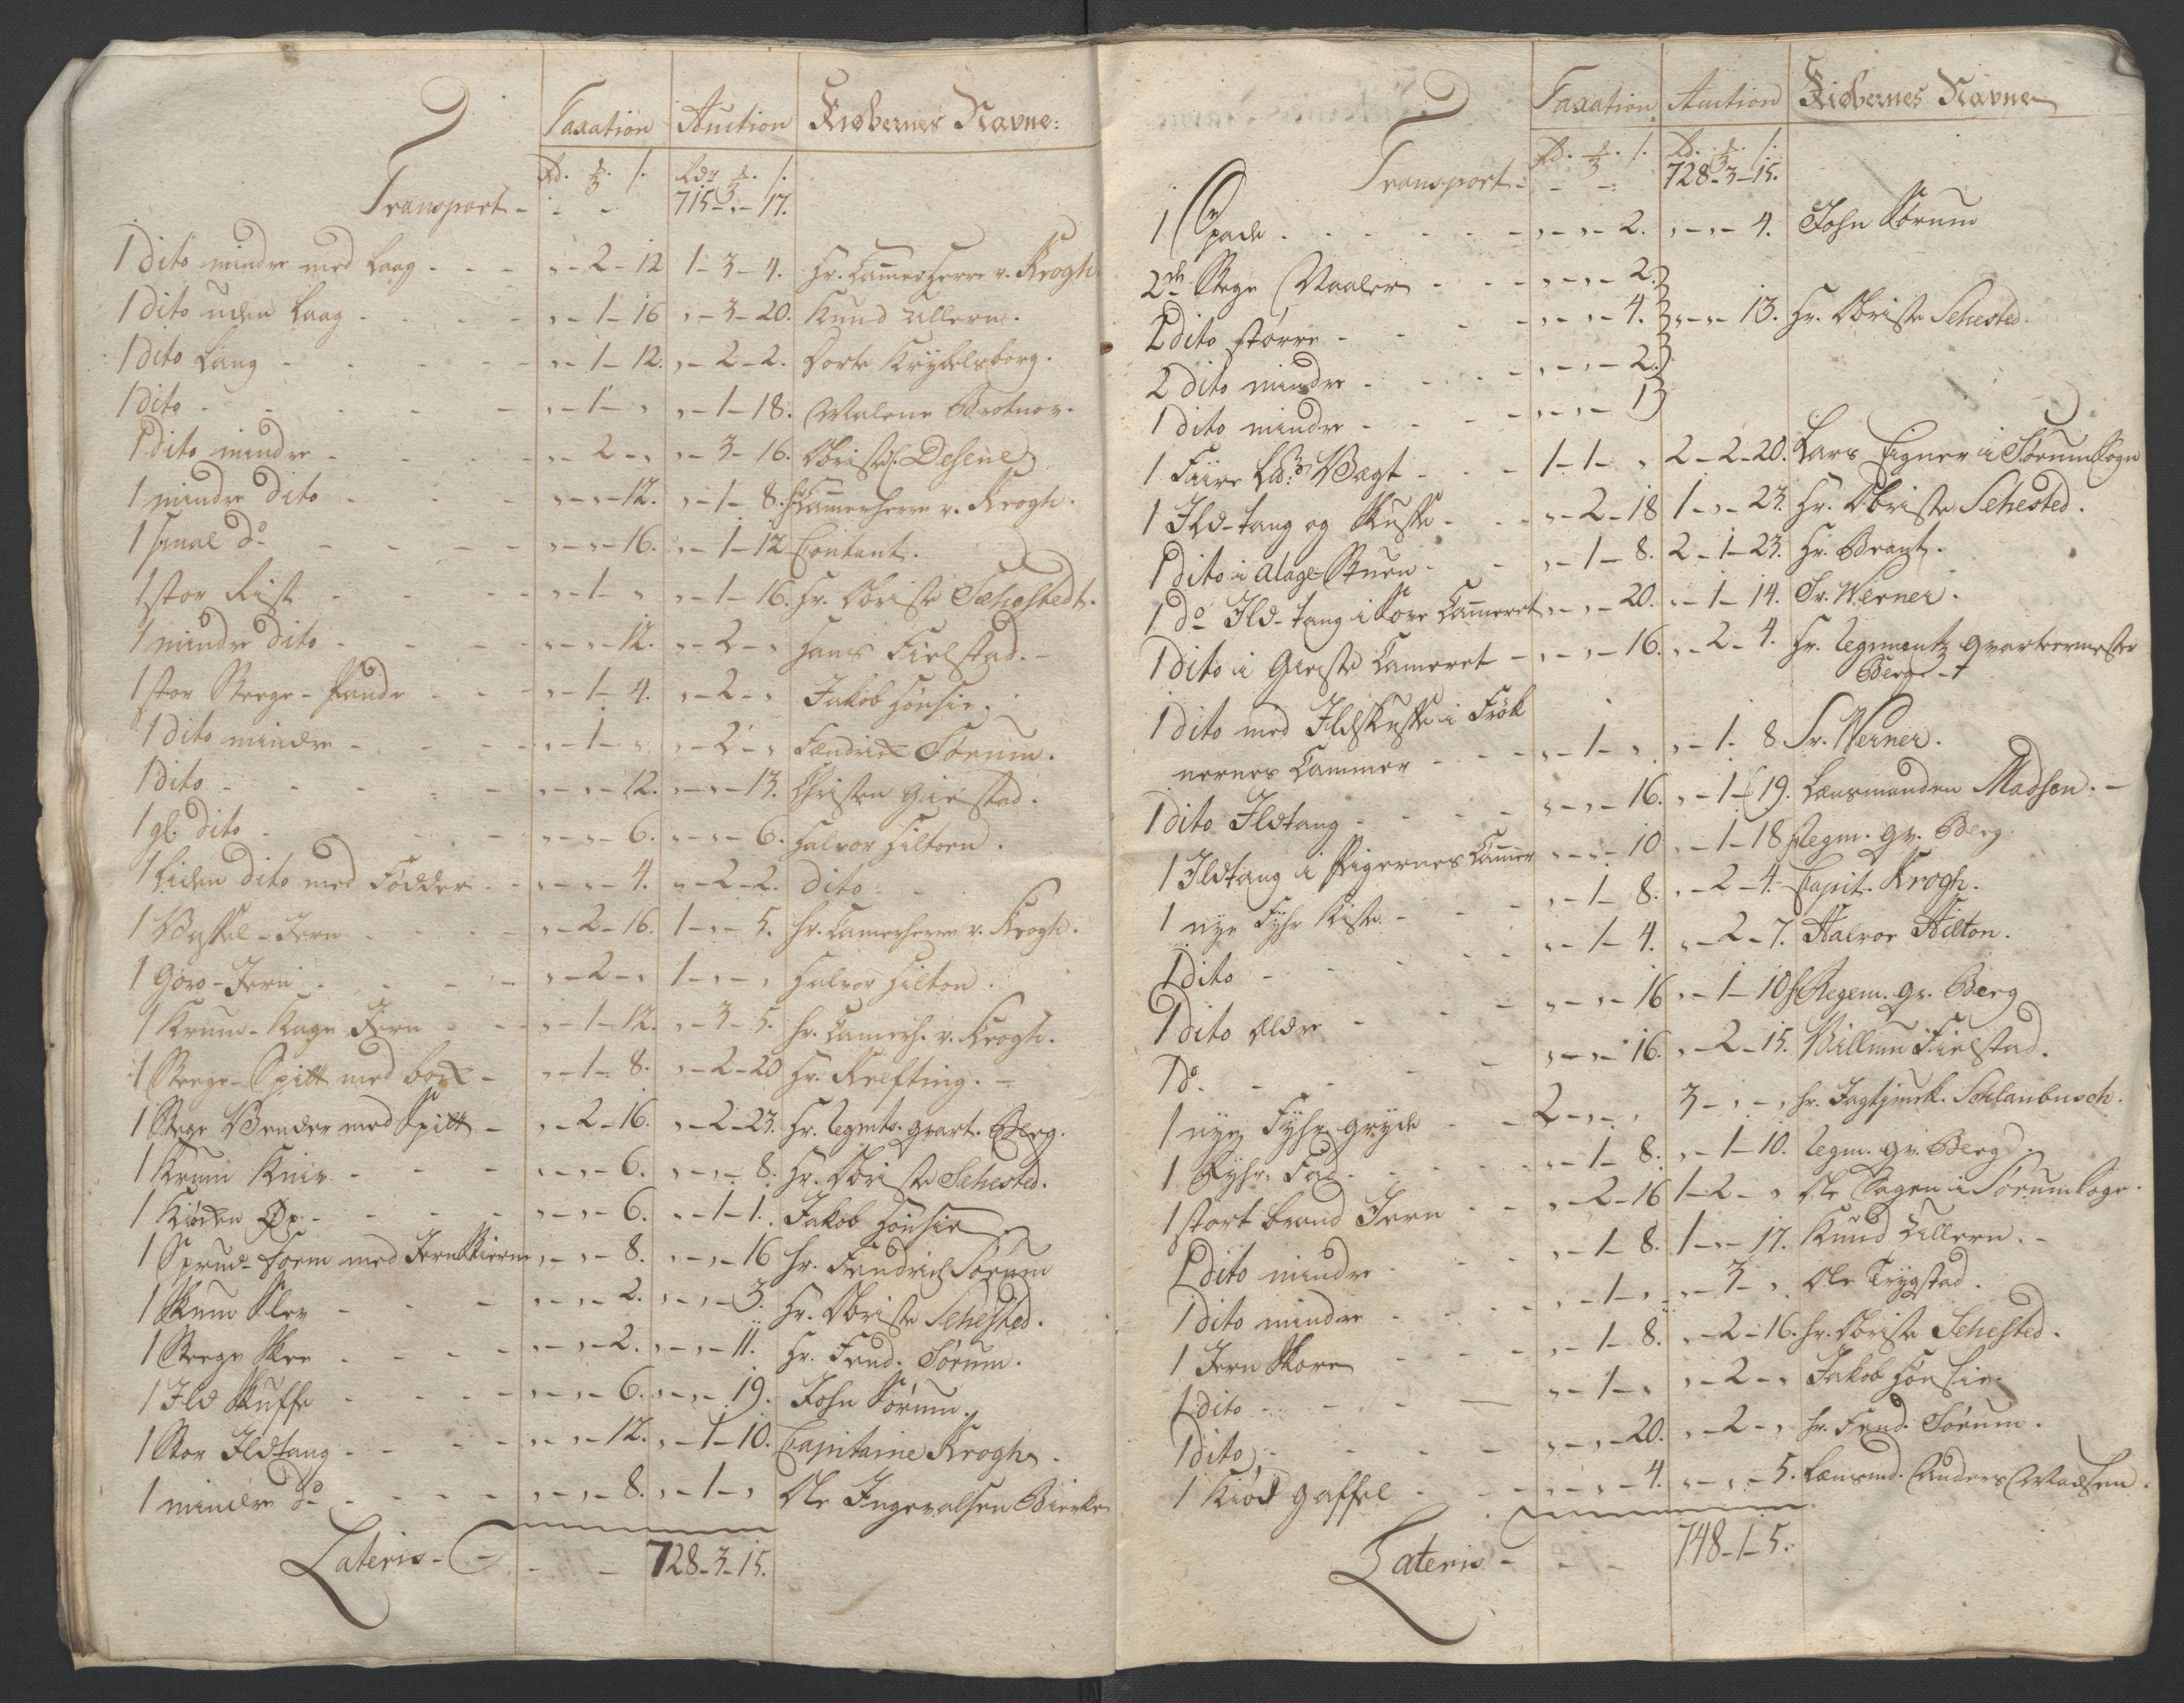 Taxation Auction Kiøbernes Navne:
Rd. ℔. s. Rdr ℔. s.
Transport - - - 715 - " - 17.
1 dito mindre med Laag - - - " - 2 - 12 1 - 3 - 4. Hr. Cammerherre v. Krogh
1 dito uden Laag - - - " - 1 - 16 " - 3 - 20. Knud Ullern.
1 dito Lang - - - " - 1 - 12. " - 2 - 2. Dorte
1 dito - - - " - 1 - " " - 1 - 18. Malene Brotnor.
1 dito mindre - - - " - 2 - " " - 3 - 16. Obristl. Desene
1 mindre dito - - - " - " - 12. " - 1 - 8. Hr. Cammerherre v. Krogh.
1 smal do - - - " - " - 16. " - 1 - 12 Contant.
1 stor Rist - - - " - 1 - " " - 1 - 16. Hr. Obriste Sehestedt.
1 mindre dito - - - " - " - 12. " - 2 - " Hans Fielstad.
1 stor Steege-Pande - - - " - 1 - 4. " - 2 - " Jakob Hønsie.
1 dito mindre - - - " - 1 - " " - 2 - " Fændrix Sørum.
1 dito - - - " - " - 12. " - " - 13. Christen Giestad.
1 gl. dito - - - " - " - 6. " - " - 6. Halvor Hiltoen.
1 Liden dito med Fødder - - - " - " - 4. " - 2 - 2. dito
1 Vaffel-Jern - - - " - 2 - 16. 1 - " - 5. Hr. Camerherre v. Krogh.
1 Goro-Jern - - - " - 2 - " 1 - " - " Halvor Hilton.
1 Krum-Kage Jern - - - " - 1 - 12. " - 3 - 5. Hr. Camerh. v. Krogh.
1 Steege-Spitt med box - " - 1 - 8. " - 2 - 20 Hr. Refting.
1 Stege Vender med Spitt - " - 2 - 16. " - 2 - 23. Hr. Regmts. Qvart. Berg.
1 Krum Kniv - - - " - " - 6. " - " - 8. Hr. Obriste Sehested.
1 Kiøken Øx - - - " - " - 6. " - 1 - 1. Jakob Hønsie
1 med Jern " - " - 8. " - " - 16 Hr. Fendrich Sørum
1 Skum Slev - - - " - " - 2. " - " - 3. Hr. Obriste Sehested.
1 Steege Skee - - - " - " - 2. " - " - 11. Hr. Fend. Sørum.
1 Ild Skuffe - - - " - " - 6. " - " - 19. John Sørum.
1 Stor Ildtang - - - " - " - 12. " - 1 - 10. Capitaine Krogh.
1 mindre do - - - " - " - 8. " - 1 - " Ole Ingevalsen Bierke
Lateris - - - 728 - 3 - 15.
Taxation Auction Kiøbernes Navne
Rd. ℔. s. Rd. ℔. s.
Transport - - - 728 - 3 - 15.
1 Spade - - - " - " - 2. " - " - 4. John Sørum
2de Stege Naaler - - - " - " - 2.
2 dito større - - - " - " - 4. " - " - 13. Hr. Obriste Sehested.
2 dito mindre - - - " - " - 2.
1 dito mindre - - - " - " - 1
1 Fiire Vægt - - - 1 - 1 - " 2 - 2 - 20. Lars Eigner i Sørum Sogn
1 Ild-tang og Skuffe - - - " - 2 - 18 1 - " - 23. Hr. Obriste Sehested.
1 dito i Stuen - - - " - 1 - 8. 2 - 1 - 23. Hr. Brant.
1 do Ild-tang i Cammeret " - " - 20. " - 1 - 14. Sr. Werner.
1 dito i Cameret - " - " - 16. " - 2 - 4. Hr. Regimentz Qvarteermester
Berg
1 dito med Ildskuffe i Frøk
nernes Cammer - - - " - 1 - " " - 1 - 8 Sr. Werner.
1 dito Ildtang - - - " - " - 16. " - 1 - 19. Lænsmanden Madsen.
1 Ildtang i Pigernes Cammer " - " - 10 " - 1 - 18 Regm. Qv. Berg.
1 nye Fyhr Kiste - - - " - 1 - 8. " - 2 - 4. Capit. Krogh.
1 dito - - - " - 1 - 4. " - 2 - 7. Halvor Hilton.
1 dito ældre - - - " - " - 16 " - 1 - 10 Hr. Regem. Qv. Berg
1 do. - - - " - " - 16. " - 2 - 15. Villum Fielstad.
1 nye Fyhr gryde - - - 2 - " - " 3 - " - " Hr. Jagtjunk. Schlanbusch.
1 Fyhr Fad - - - " - 1 - 8. " - 1 - 10. Regm. Qv. Berg
1 stort brand Jern - - - " - 2 - 16 1 - 2 - " Ole i Sørum Sogn.
1 dito mindre - - - " - 1 - 8. 1 - " - 17. Knud Ullern.
1 dito mindre - - - " - 1 - " " - 3 - " Ole Trygstad.
1 Jern Skore - - - " - 1 - 8. " - 2 - 16. Hr. Obriste Sehested.
1 dito - - - " - 1 - " " - 2 - " Jakob Hønsie.
1 dito - - - " - " - 20. " - 2 - " Hr. Fend. Sørum.
1 Kiød gaffel - - - " - " - 4. " - " - 5. Lænsmd. Anders Madsen.
Lateris - - - 748 - 1 - 5.